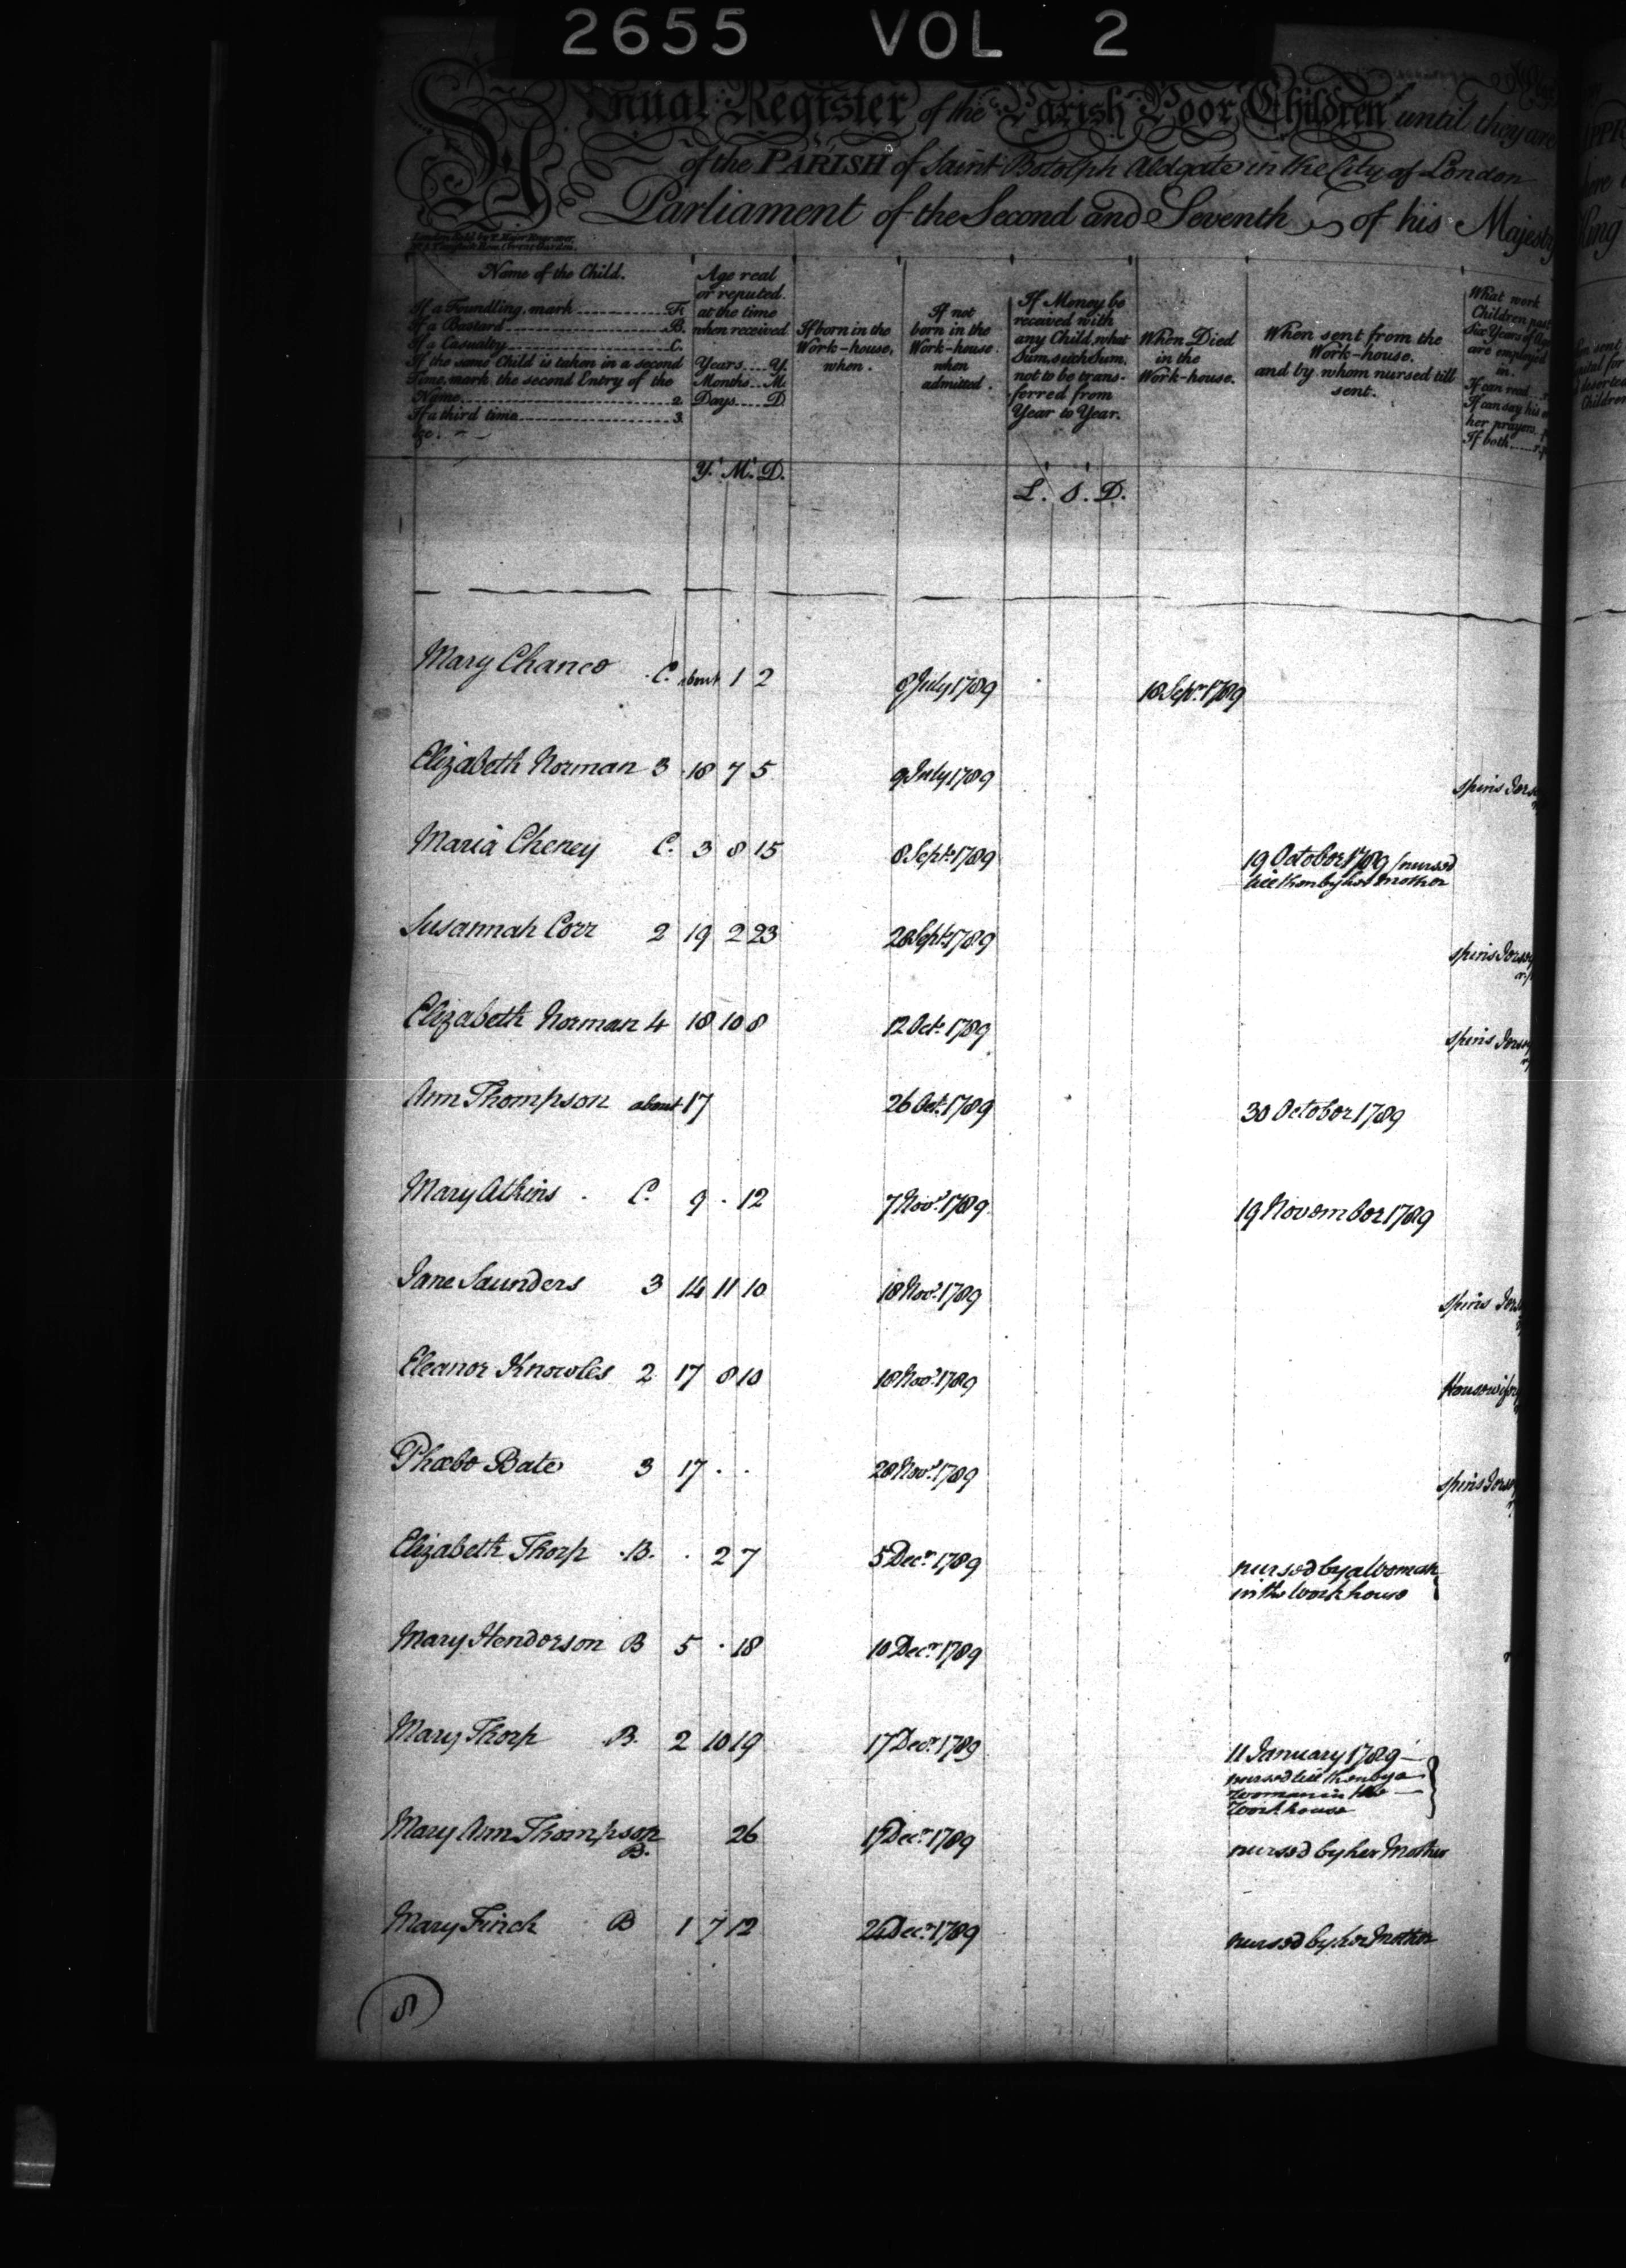 2655 VOL 2
Annual Register of the Parish Poor Children until they are
of the PARISH of Saint Botolph Aldgate in the City of London
Parliament of the Second and Seventh of his Majesty
King
Name of the Child.
If a Foundling, mark F.
If a Bastard B.
If a Casualty C.
If the same Child is taken in a second
Time, mark the second Entry of the
Name 2
If a third time 3
&c.
Age real
or reputed
at the time
when received
Years Y.
Months M.
Days D.
If born in the
Work-house,
when.
If not
born in the
Work-house
when
admitted.
If Money be
received with
any Child, what
Sum, such Sum,
not to be trans-
ferred from
Year to Year.
When Died
in the
Work-house.
When sent from the
Work-house.
and by whom nursed till
sent.
What work
Children past
Six Years of Age
are employed
in.
If can read
If can say his or
her prayers
If both
Y. M. D.
L. S. D.
Mary Chance C. about 1 2 8 July 1789 18 Sepr. 1789
Elizabeth Norman 3 18 7 5 9 July 1789 spins Jerse
Maria Cheney C. 3 8 15 8 Sept. 1789 19 October 1789 / nursed
till then by her Mother
Susannah Corr 2 19 2 23 28 Sept. 1789 spins Jersey
Elizabeth Norman 4 18 10 8 12 Oct. 1789 spins Jersey
Ann Thompson about 17 26 Oct. 1789 30 October 1789
Mary Atkins C. 9 . 12 7 Novr. 1789 19 November 1789
Jane Saunders 3 14 11 10 18 Novr. 1789 spins Jers
Eleanor Knowles 2 17 8 10 18 Novr. 1789 Housewifry
Phœbe Bate 3 17 . . 28 Novr. 1789 spins Jersey
Elizabeth Thorp B. . 2 7 5 Decr. 1789 nursed by a Woman
in the Workhouse
Mary Henderson B 5 . 18 10 Decr. 1789
Mary Thorp B. 2 10 19 17 Decr. 1789 11 January 1789
nursed till then by a
Woman in the
Workhouse
Mary Ann Thompson 26 17 Decr. 1789 nursed by her Mother
B.
Mary Finch B 1 7 12 24 Decr. 1789 nursed by her Mother